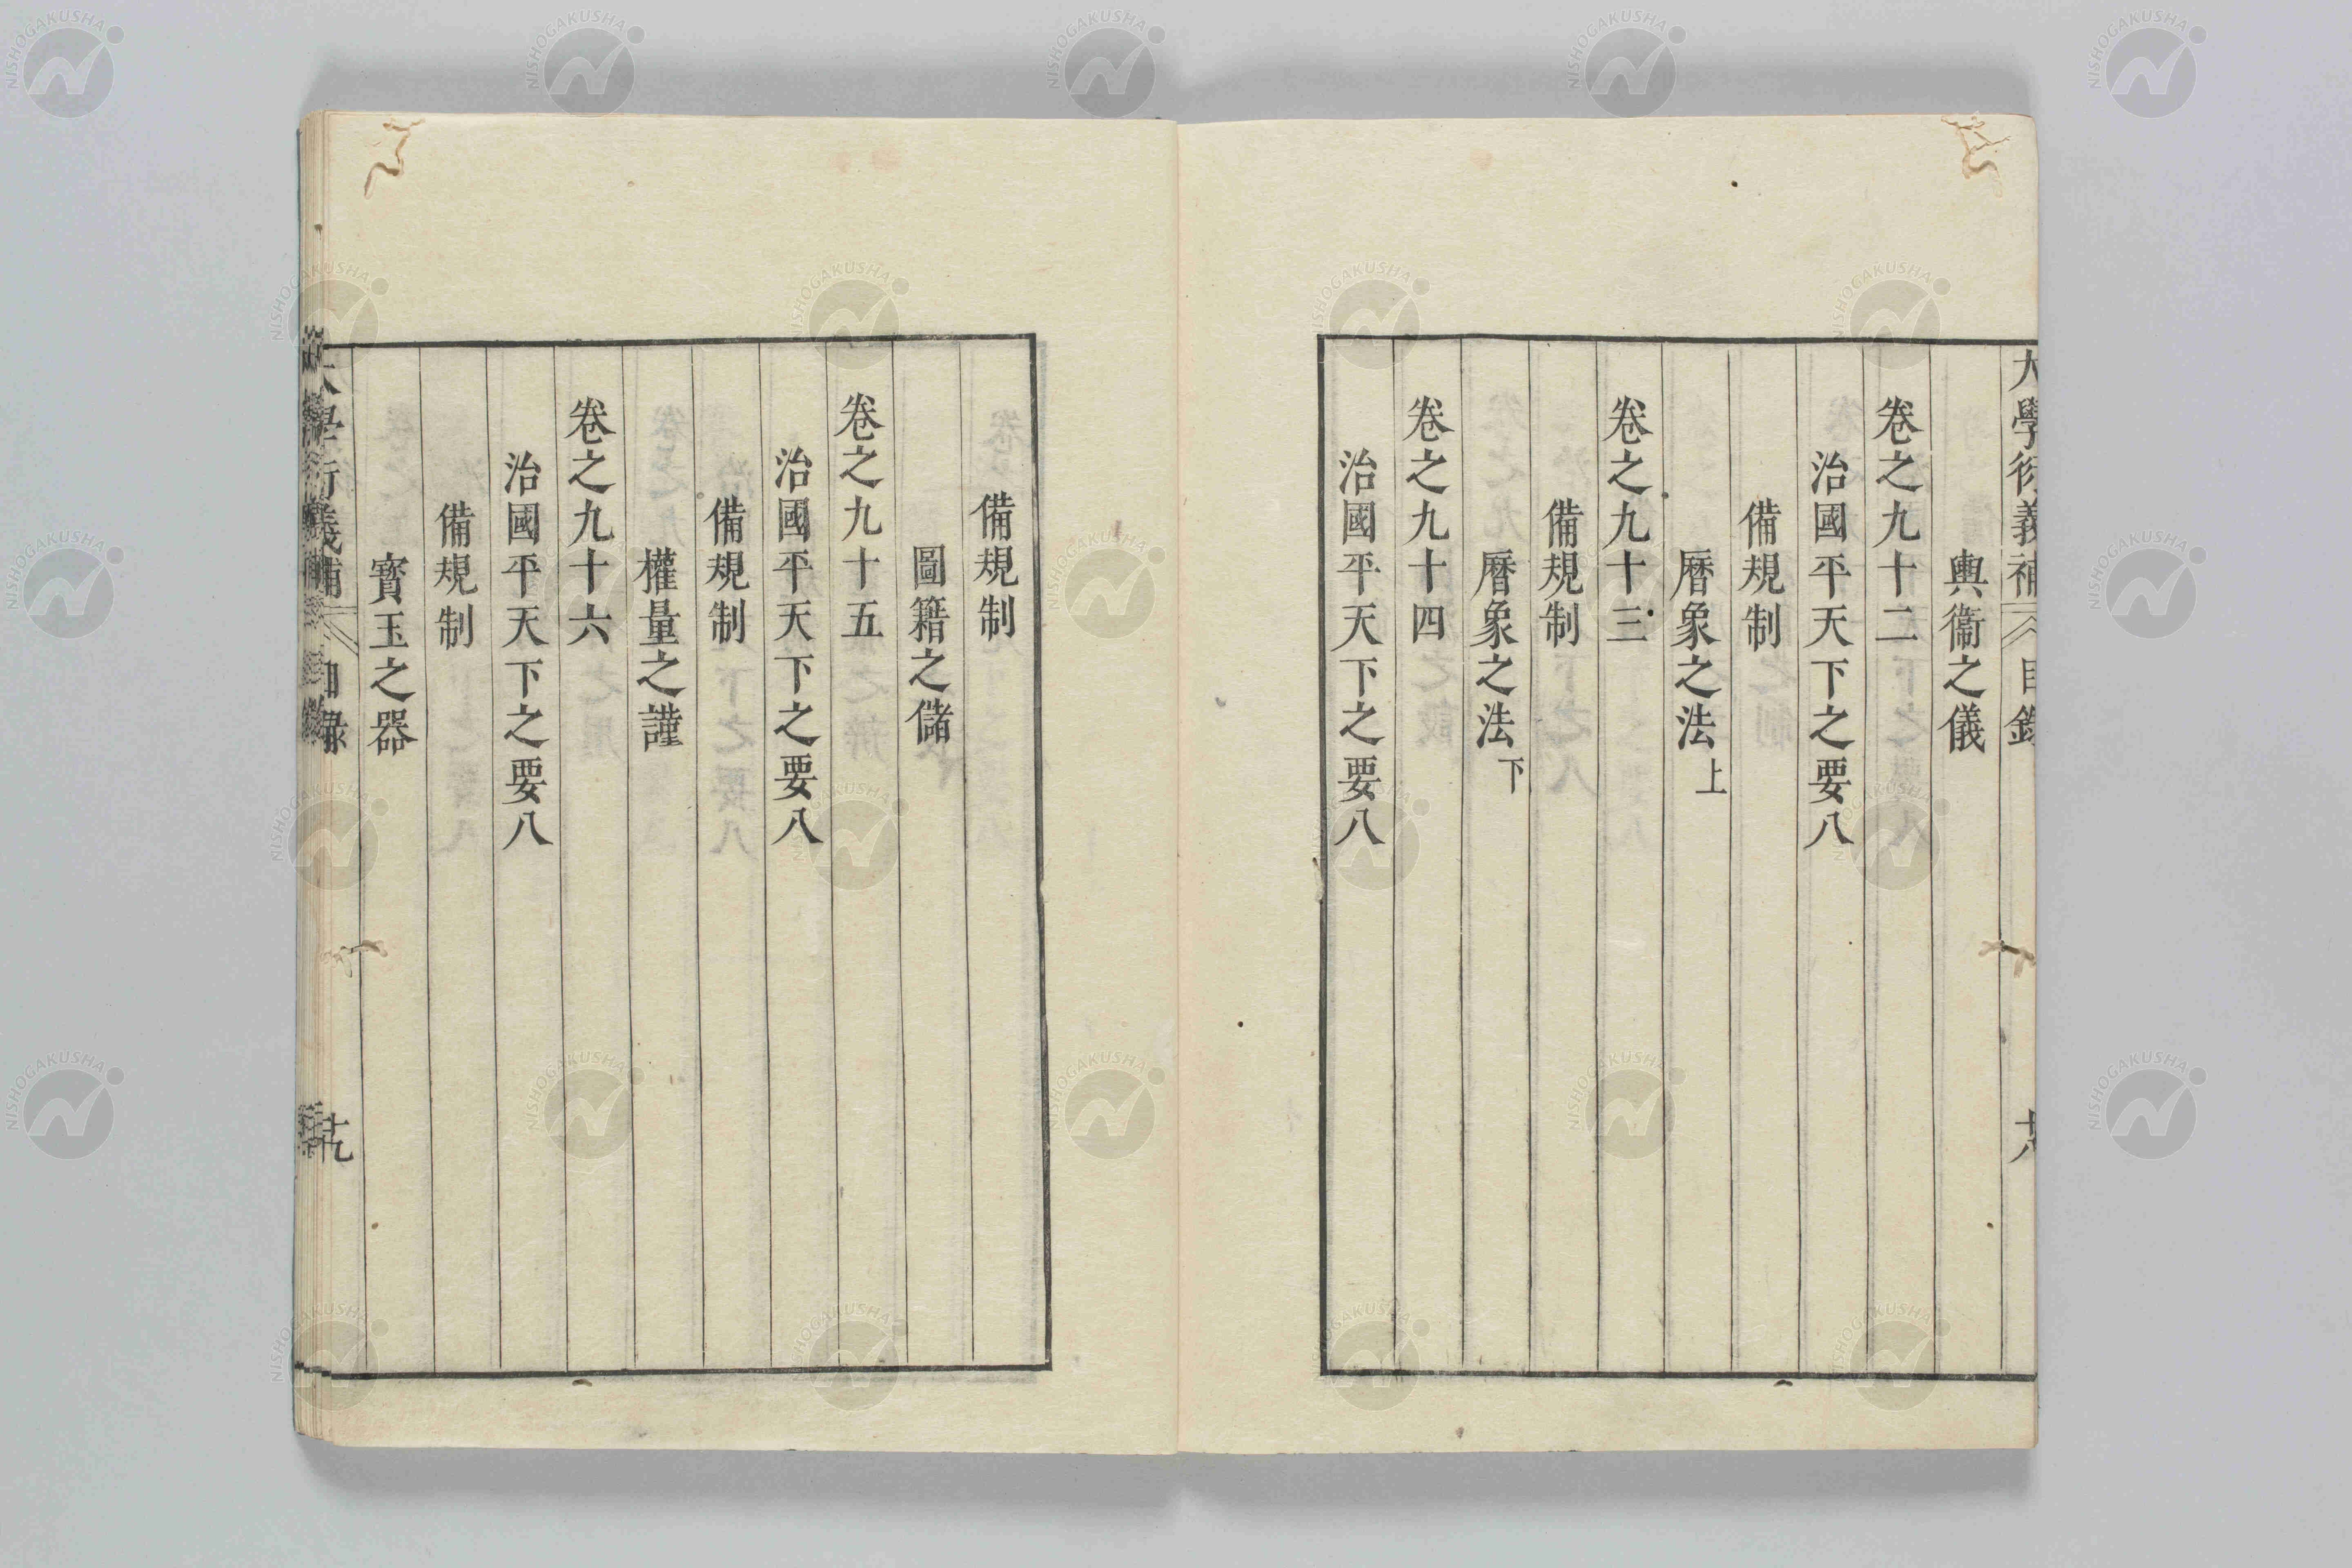 大學衍義補 目錄
輿衞之儀
卷之九十二
治國平天下之要八
備規制
曆象之法上
卷之九十三
備規制
曆象之法下
卷之九十四
治國平天下之要八
備規制
圖籍之儲
卷之九十五
治國平天下之要八
備規制
權量之謹
卷之九十六
治國平天下之要八
備規制
寳玉之器
大學衍義補 目錄 十九
NISHOGAKUSHA